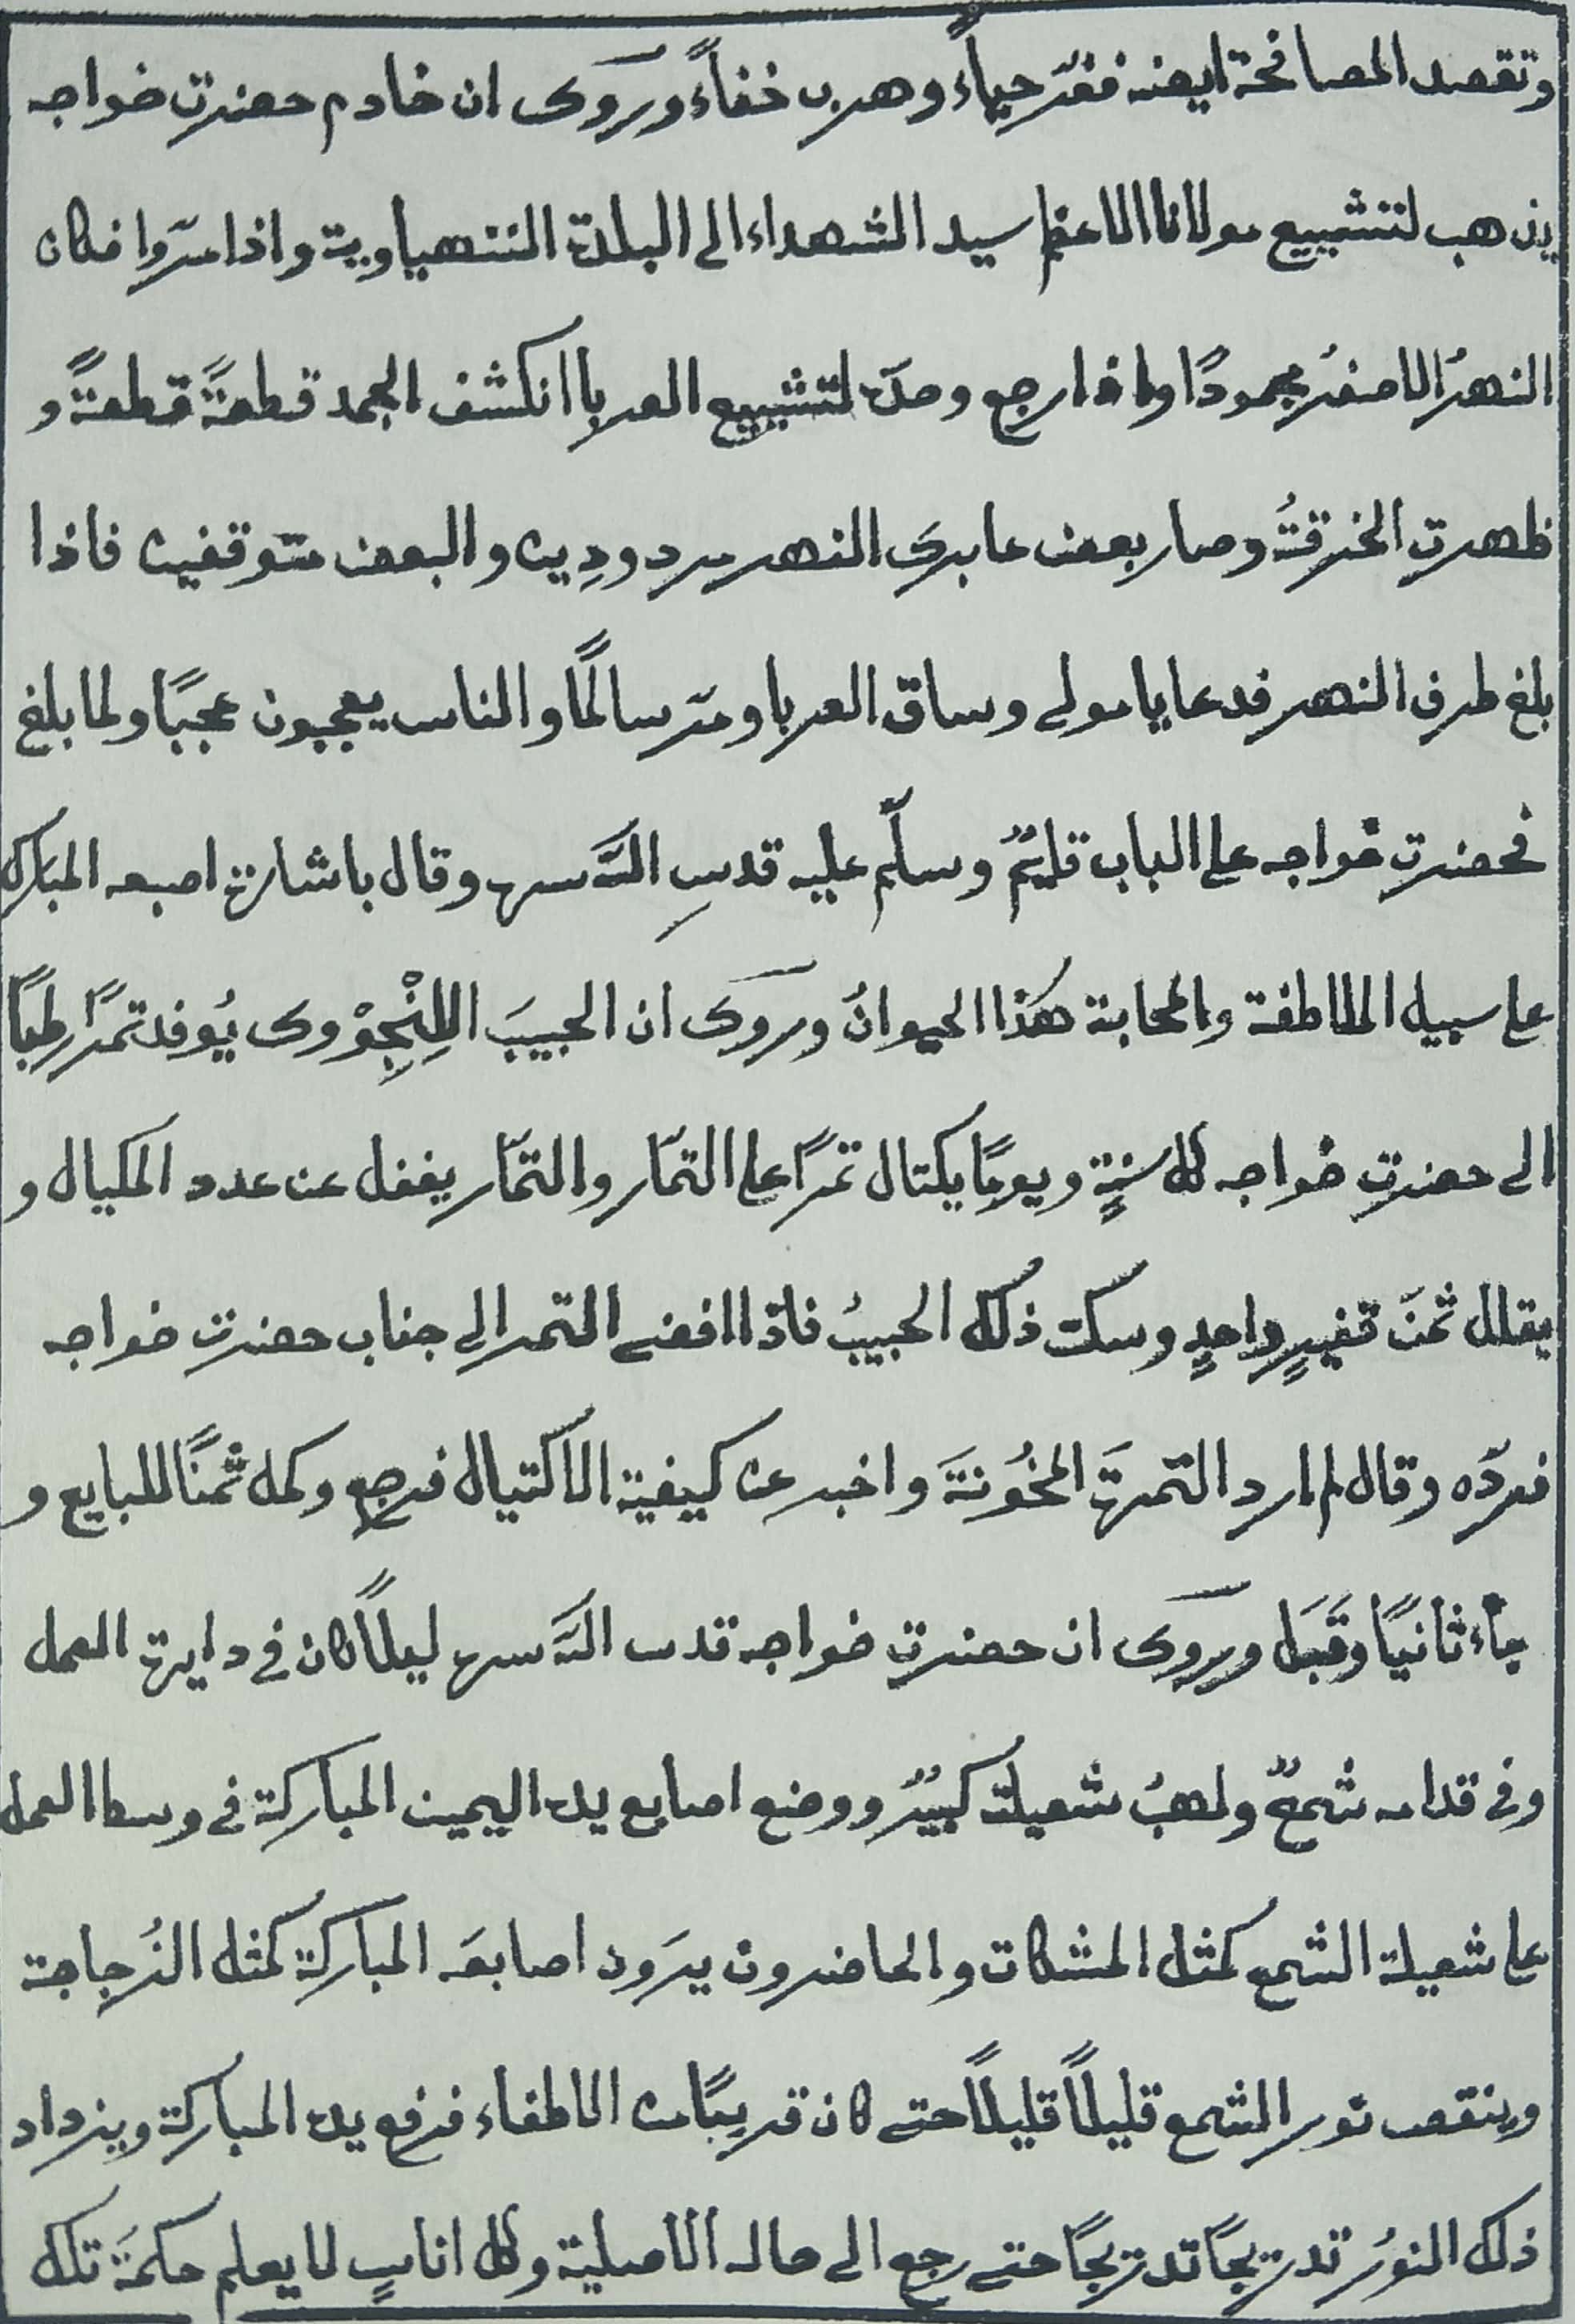 وتقصد المصافحة ايضه ففرّ حياءً وهرب خفاءً وروى ان خادم حضرت خواجه
يذهب لتشييع مولانا الاعظم سيد الشهداء الى البلدة النتهياوية واذا مرّوا فكان
النهرُ الاصفرُ مجمودًا واذا رجع وحدَه لتشييع العربا انكشف الجمد قطعةً قطعةً و
ظهرت الخرقةُ وصار بعض عابرى النهر مردودِين والبعض متوقفين فاذا
بلغ طرف النهر فدعا يا مولى وساق العربا ومرّ سالمًا والناس يعجبون عجبًا ولما بلغ
فحضرت خواجه على الباب قايمٌ وسلّم عليه قدسِ اللّه سره وقال باشارة اصبعه المبارك
على سبيل الملاطفة والمحابة هكذا الحيوانُ وروى ان الحبيبَ اللِنْجِوْوى يُوفد تمرًا رطبًا
الى حضرت خواجه كل سنةٍ ويومًا يكتال تمرًا على التمّار والتمّار يغفل عن عدد المكيال و
يقلل ثمنَ قفيزٍ واحدٍ وسكت ذلك الحبيبُ فاذا افضى التمر الى جناب حضرت خواجه
فردّه وقال لم ارد التمرةَ المخُونةَ واخبر عن كيفية الاكتيال فرجع وكمل ثمنًا للبايع و
جاء ثانيًا وقَبَل وروى ان حضرت خواجه قدس اللّه سره ليلاً كان فى دايرة العمل
وفى قدامه شمعٌ ولهبُ شعيلة كبيرٌ ووضع اصابع يده اليمين المباركة فى وسط العمل
على شعيلة الشمع كمثل المشكات والحاضرون يرَون اصابعَه المباركة كمثل الزُجاجة
وينقص نور الشمع قليلاً قليلاً حتى كان قريبًا من الاطفاء فرفع يده المباركة ويزداد
ذلك النورُ تدريجًا تدريجًا حتى رجع الى حاله الاصلية وكل اناسٍ لا يعلم حكمةَ تلك